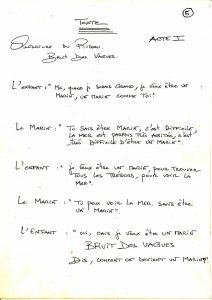 5
TEXTE
ACTE I
OUVERTURE DU RIDEAU.
BRUIT DES VAGUES.
L'ENFANT: "MOI, QUAND JE SERAI GRAND, JE VEUX ÊTRE UN
MARIN, UN MARIN COMME TOI."
LE MARIN: "TU SAIS ÊTRE MARIN, C'EST DIFFICILE
LA MER EST PARFOIS TRÈS AGITÉE, C'EST
DIFFICILE D'ÊTRE UN MARIN"
L'ENFANT: "JE VEUX ÊTRE UN MARIN, POUR TROUVER
TOUS LES TRÉSORS, POUR VOIR LA
MER".
LE MARIN: "TU PEUX VOIR LA MER, SANS ÊTRE
UN MARIN"
L'ENFANT: "OUI, MAIS JE VEUX ÊTRE UN MARIN
BRUIT DES VAGUES
DIS, COMMENT ON DEVIENT UN MARIN?"